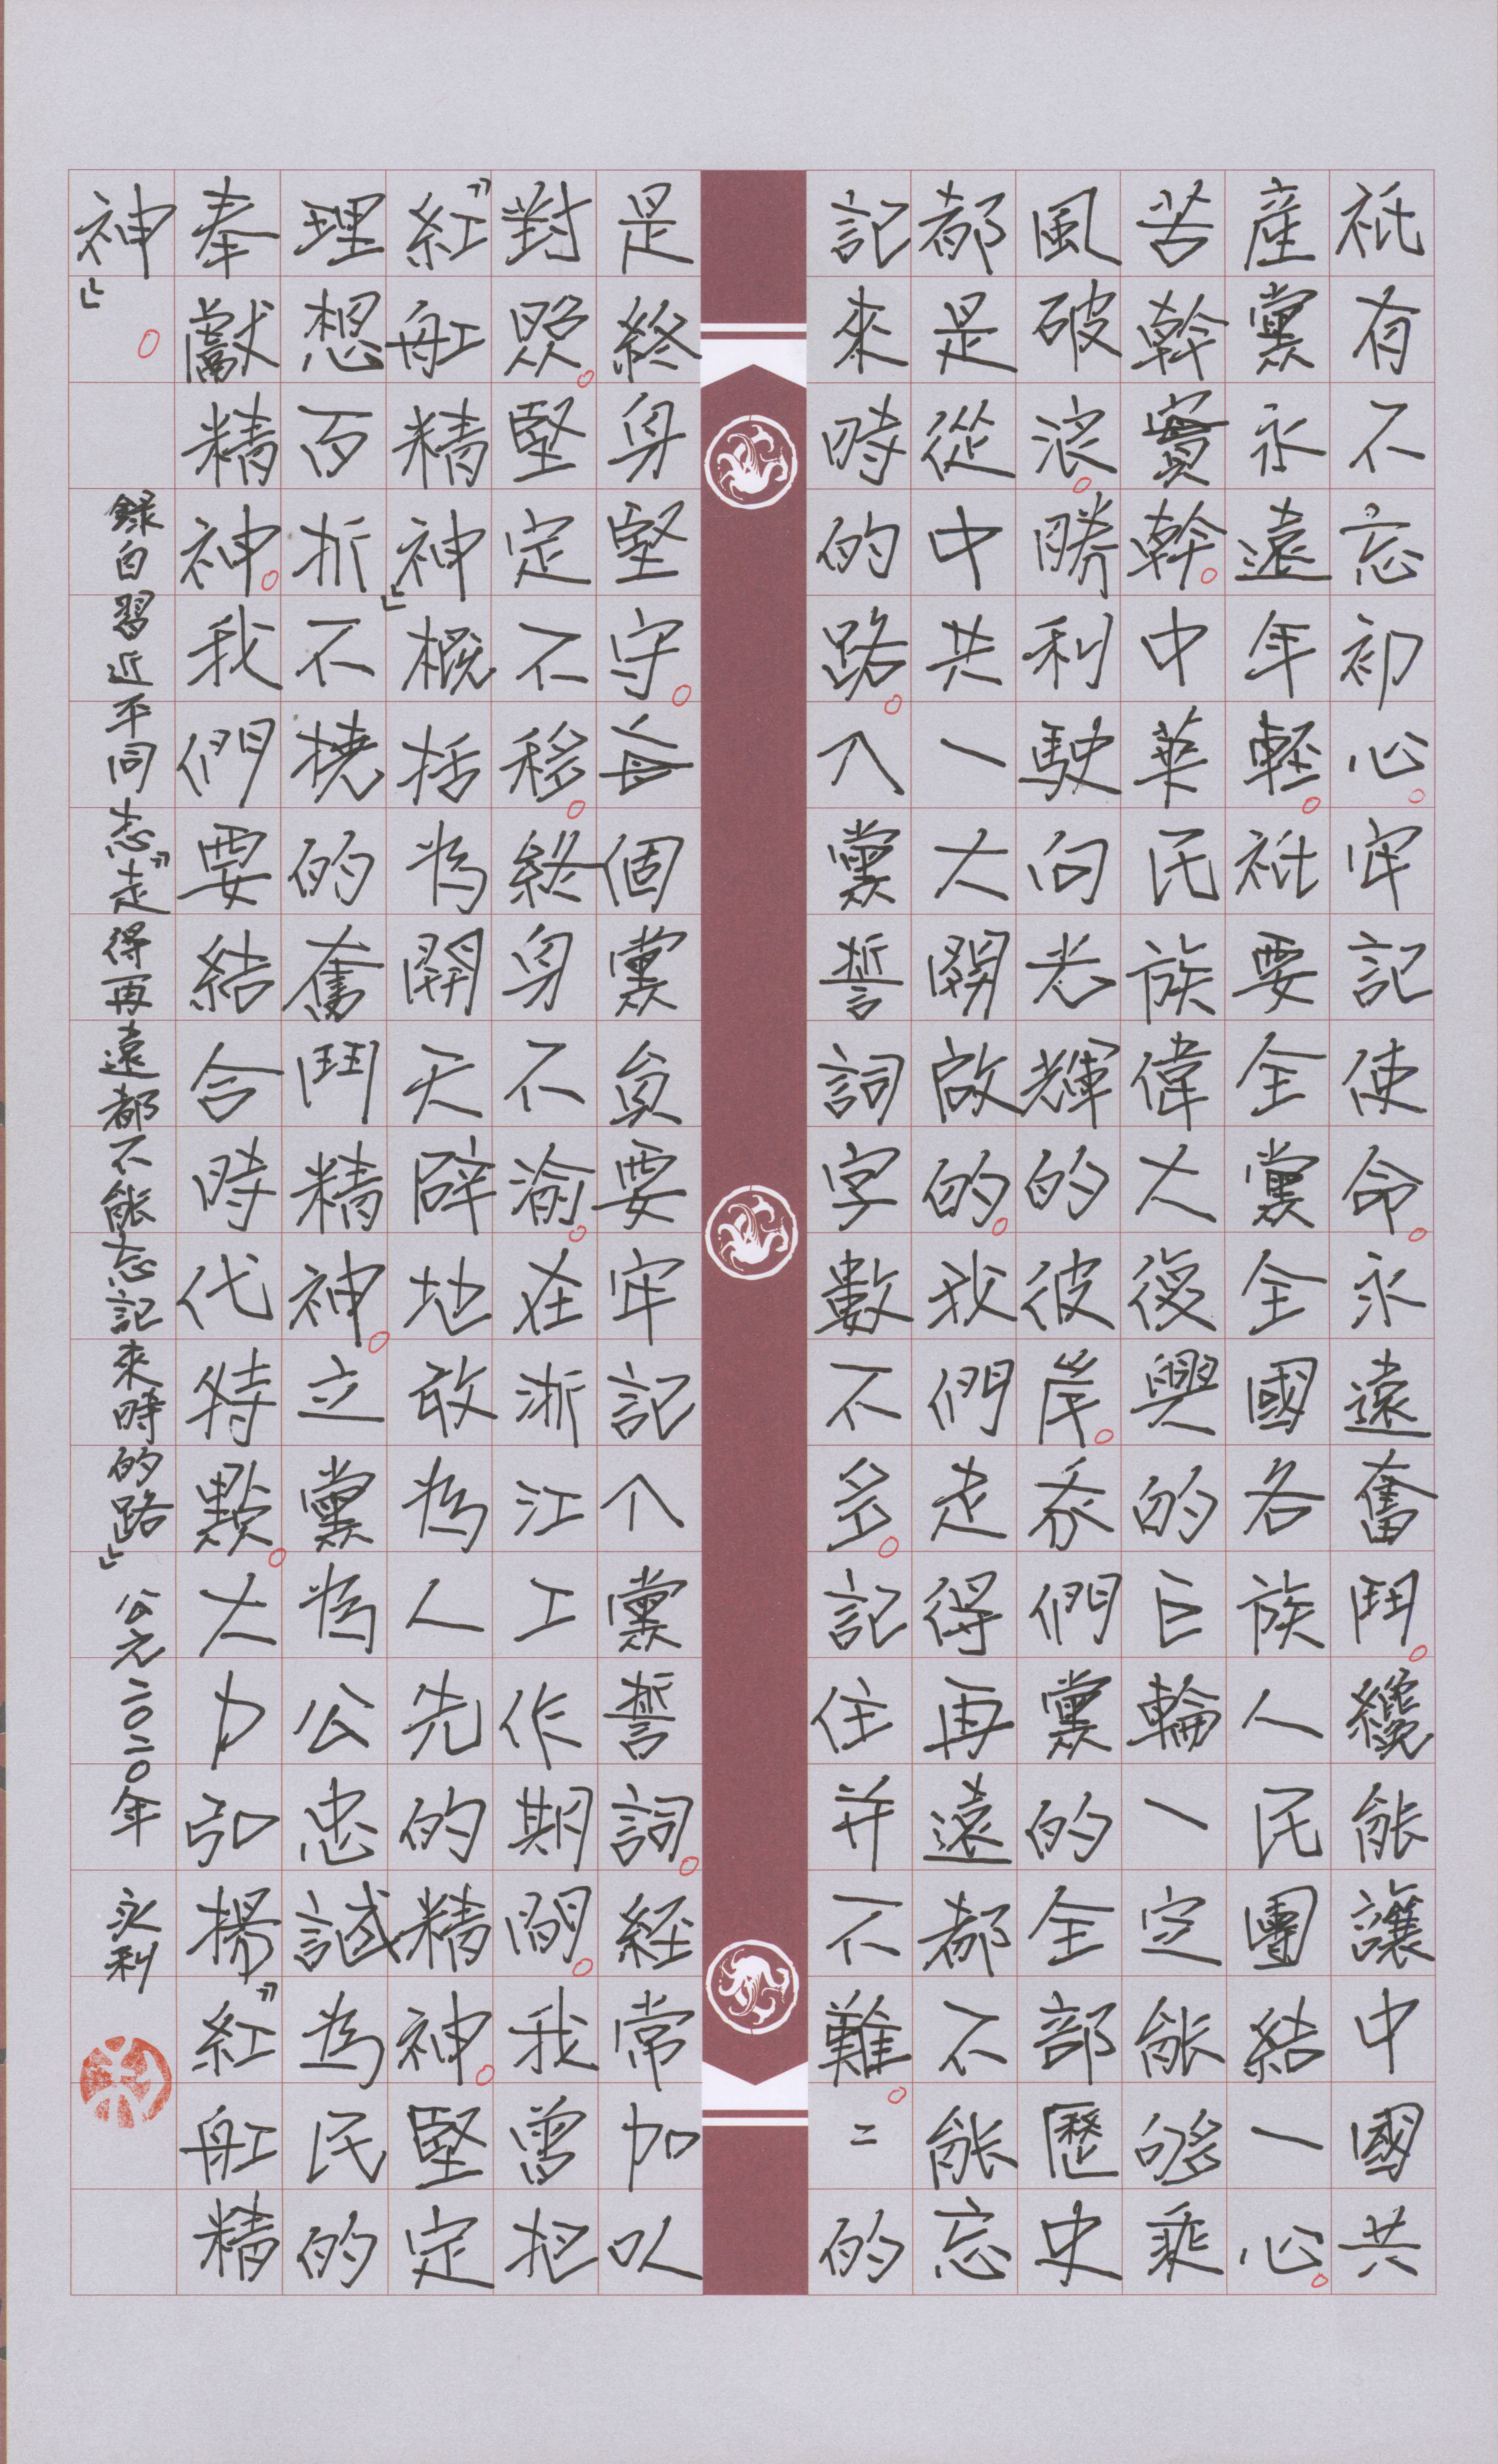 祇有不忘初心。牢記使命。永遠奮鬥。纔能讓中國共
產黨永遠年輕。祇要全黨全國各族人民團結一心。
苦幹實幹。中華民族偉大復興的巨輪一定能够乘
風破浪。勝利駛向光輝的彼岸。我們黨的全部歷史
都是從中共一大開啟的。我們走得再遠都不能忘
記來時的路。入黨誓詞字數不多。記住并不難。二的
是終身堅守。每個黨員要牢記入黨誓詞。経常加以
對照。堅定不移。終身不渝。在浙江工作期間。我曾把
“紅舡精神”概括為開天辟地敢為人先的精神。堅定
理想百折不撓的奮鬥精神。立黨為公忠誠為民的
奉獻精神。我們要結合時代特點。大力弘揚“紅舡精
神”。
錄自習近平同志“走得再遠都不能忘記來時的路” 公元二〇二〇年 永利